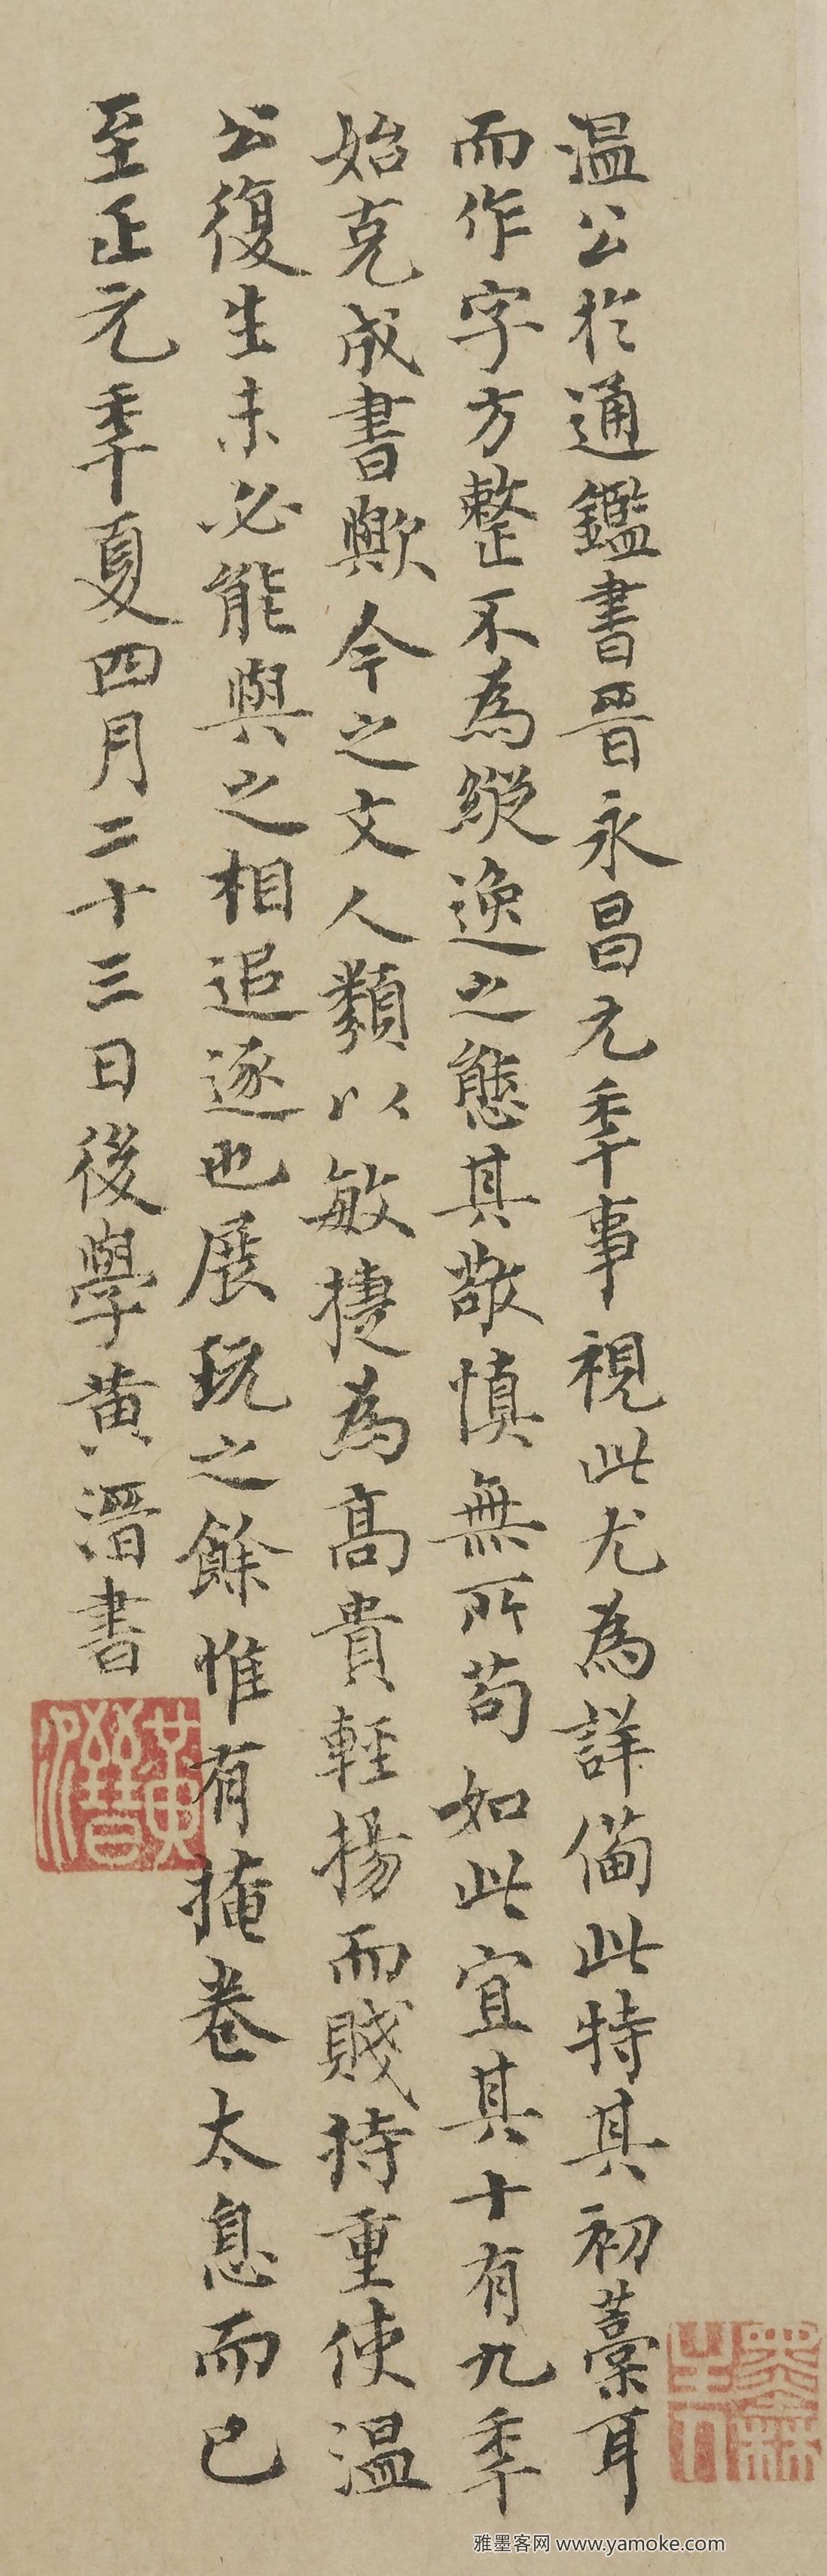 温公於通鑑書晉永昌元秊事視此尤為詳僃此特其初藁耳
而作字方整不為縱逸之態其敬慎無所苟如此宜其十有九秊
始克成書歟今之文人類以敏捷為高貴輕揚而賤持重使温
公復生未必能與之相追逐也展玩之餘惟有掩卷太息而已
至正元秊夏四月二十三日後學黄溍書
黄溍
雅墨客网 www.yamoke.com